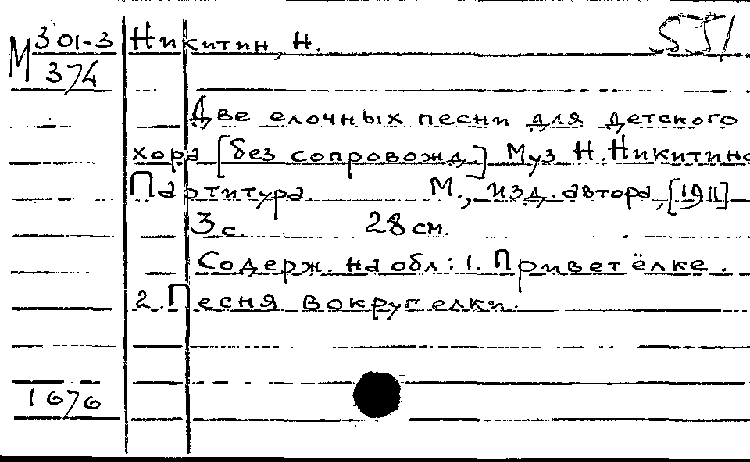 М 301-3 Никитин, Н. 551
374
Две елочных песни для детского
хора [без сопровожд.] Муз. Н. Никитина
Партитура. М., изд. автора, [1911]
3 с. 28 см.
Содерж. на обл.: 1. Привет ёлке.
2. Песня вокруг елки.
1676